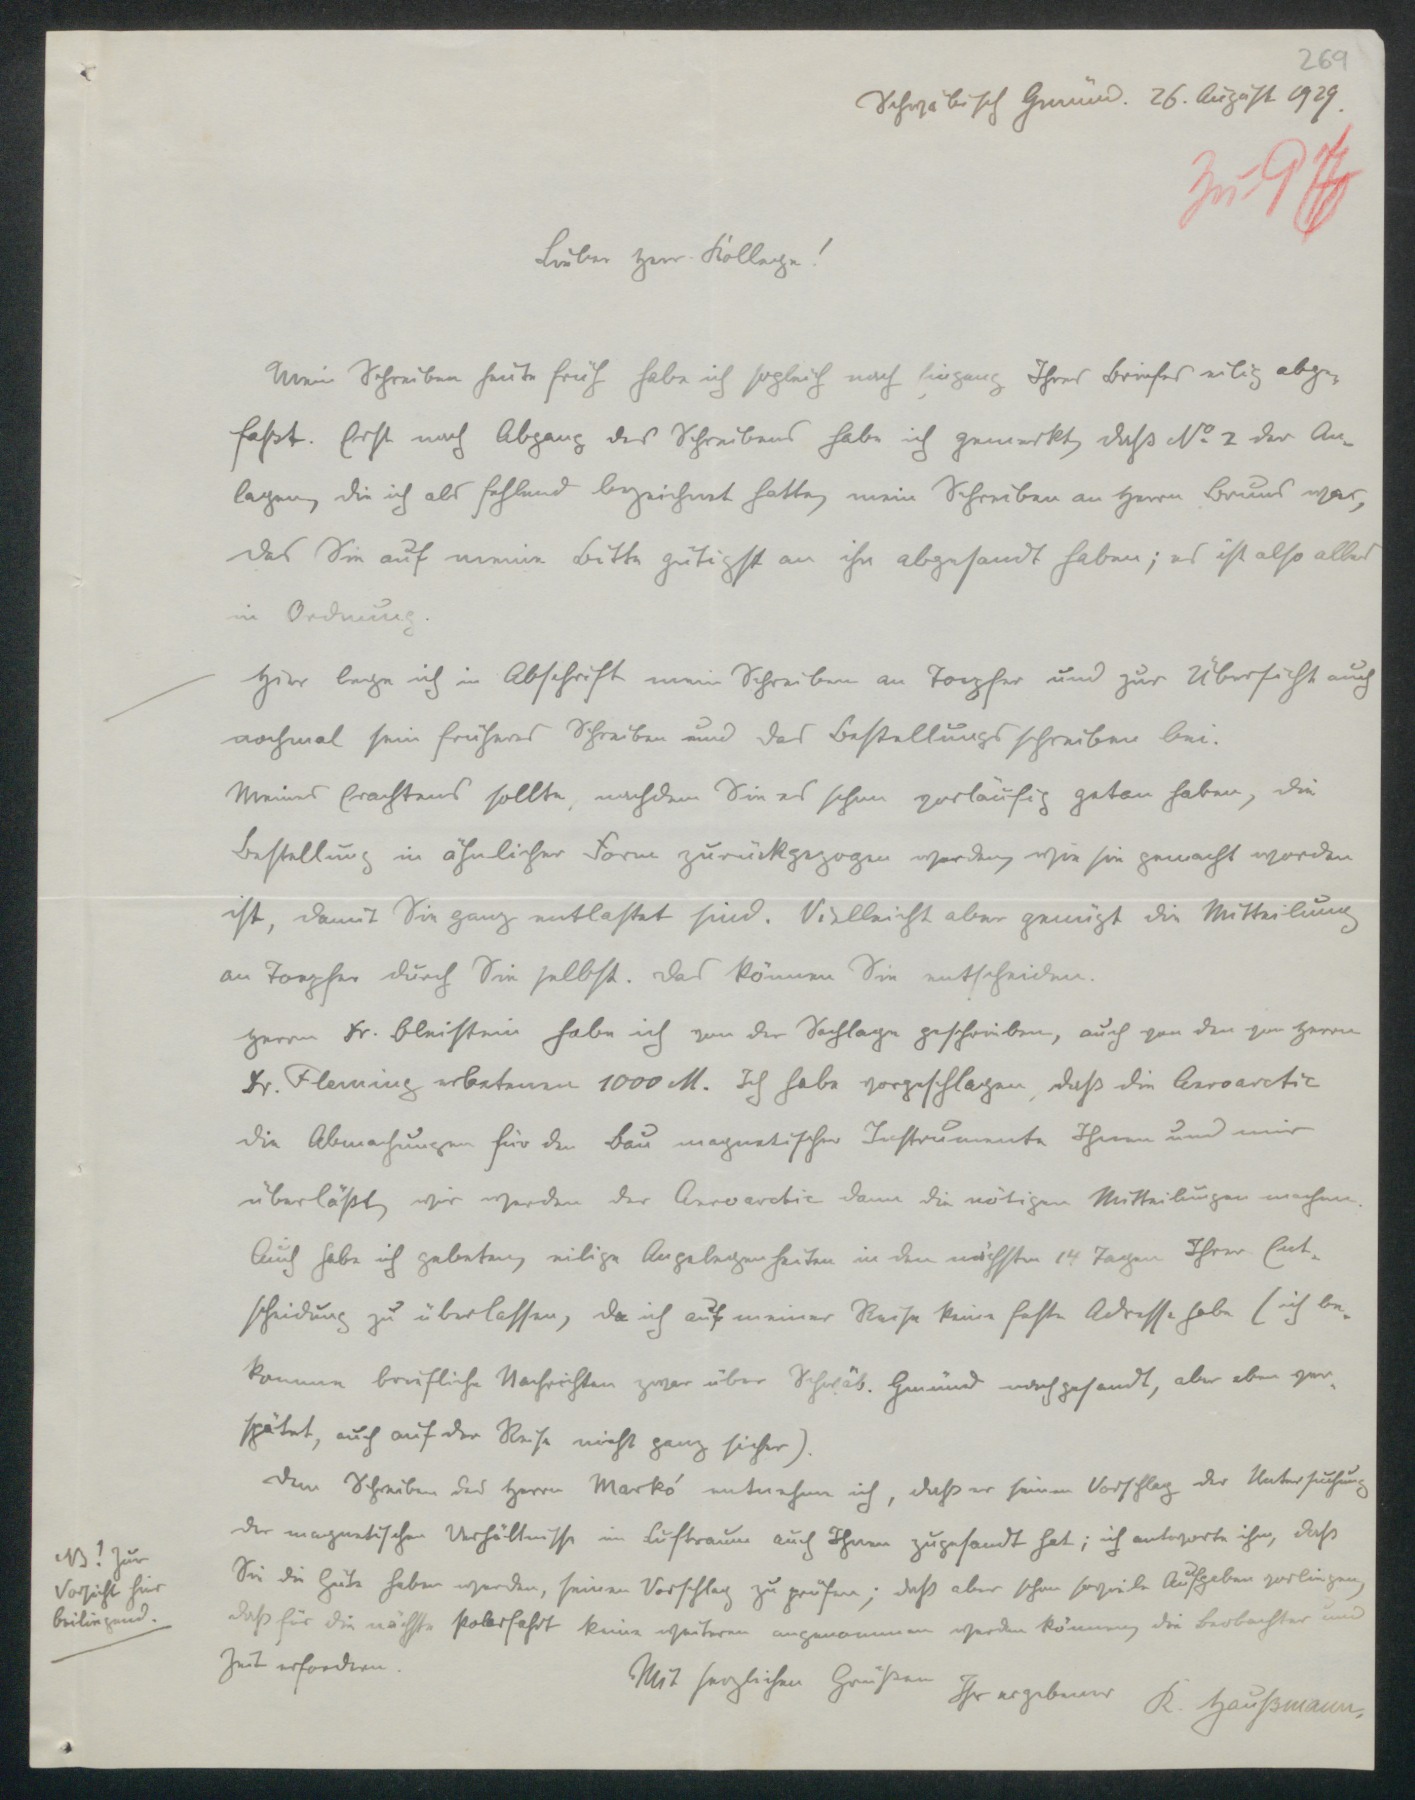 269
Schwäbisch Gmünd. 26. August 1929.
Zu 9
Lieber Herr Kollege!
Mein Schreiben heute früh habe ich sogleich nach Eingang Ihres Briefes eilig abge-
faßt. Erst nach Abgang des Schreibens habe ich gemerkt, daß No 2 der An-
lagen, die ich als fehlend bezeichnet hatte, mein Schreiben an Herrn Bruns war,
das Sie auf meine Bitte gütigst an ihn abgesandt haben; es ist also alles
in Ordnung.
Hier lege ich in Abschrift mein Schreiben an Toepfer und zur Übersicht auch
nochmal sein früheres Schreiben und das Bestellungsschreiben bei.
Meines Erachtens sollte, nachdem Sie es schon vorläufig getan haben, die
Bestellung in ähnlicher Form zurückgezogen werden, wie sie gemacht worden
ist, damit Sie ganz entlastet sind. Vielleicht aber genügt die Mitteilung
an Toepfer durch Sie selbst. Das können Sie entscheiden.
Herrn Dr. Bleistein habe ich von der Sachlage geschrieben, auch von den von Herrn
Dr. Fleming erbetenen 1000 M. Ich habe vorgeschlagen, daß die Aeroarctic
die Abmachungen für den Bau magnetischer Instrumente Ihnen und mir
überläßt, wir werden der Aeroarctic dann die nötigen Mitteilungen machen.
Auch habe ich gebeten, eilige Angelegenheiten in den nächsten 14 Tagen Ihrer Ent-
scheidung zu überlassen, da ich auf meiner Reise keine feste Adresse habe (ich be-
komme briefliche Nachrichten zwar über Schwäb. Gmünd nachgesandt, aber eben ver-
spätet, auch auf der Reise nicht ganz sicher).
Dem Schreiben des Herrn Markó entnehme ich, daß er seinen Vorschlag der Untersuchung
der magnetischen Verhältnisse im Luftraum auch Ihnen zugesandt hat; ich antworte ihm, daß
Sie die Güte haben werden, seinen Vorschlag zu prüfen; daß aber schon soviele Aufgaben vorliegen,
daß für die nächste Polarfahrt keine weiteren angenommen werden können, die Beobachter und
Zeit erfordern.
Mit herzlichen Grüßen Ihr ergebener K. Haußmann.
NB! Zur
Vorsicht hier
beiliegend.